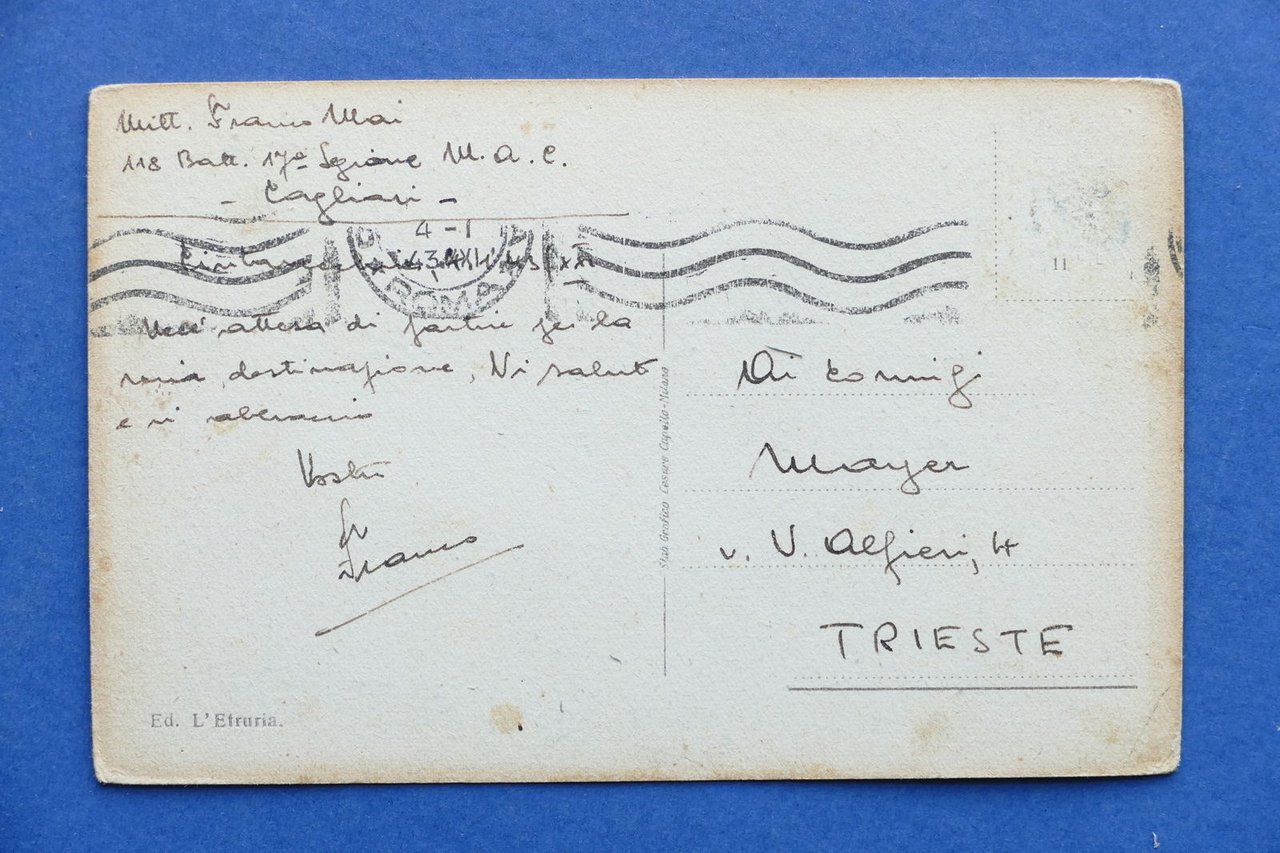 Mitt. Franco Mai
118 Batt. 17ª Legione M.A.C.
- Cagliari -
4 - 1
43 XXI
ROMA
Nell' attesa di partire per la
mia destinazione, Vi saluto
e vi abbraccio
Vostro
Franco
Ed. L'Etruria.
Stab. Grafico Cesare Capello - Milano
11
Ai coniugi
Mayer
v. V. Alfieri, 4
TRIESTE